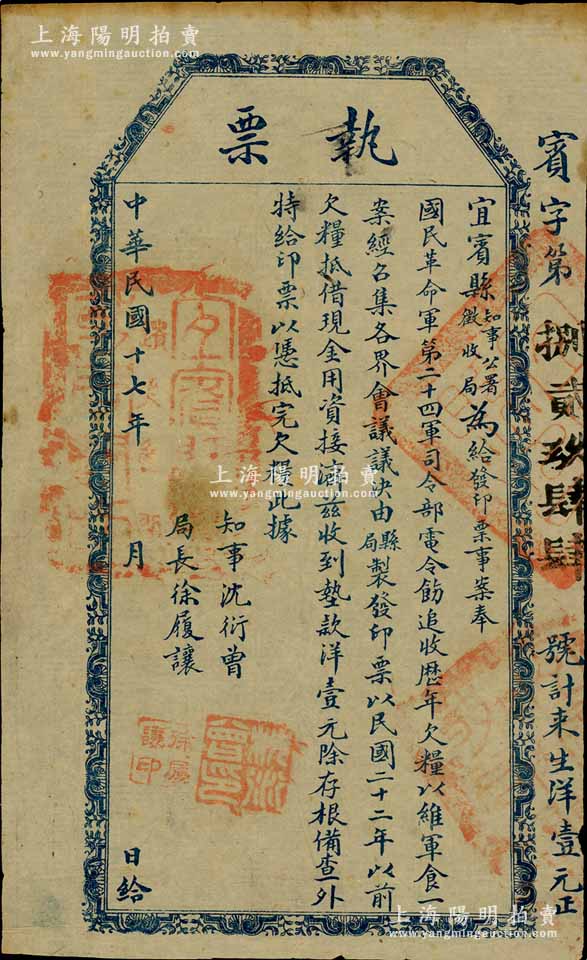 上海陽明拍賣
www.yangmingauction.com
上海陽明拍賣
www.yangmingauction.com
賓字第捌貳玖肆肆號計来生洋壹元正
執票
宜賓縣知事公署徵收局為給發印票事案奉
國民革命軍第二十四軍司令部電令飭追收歷年欠糧以維軍食一
案經召集各界會議議决由縣局製發印票以民國二十二年以前
欠糧抵借現金用資接濟茲收到墊款洋壹元除存根備查外
特給印票以憑抵完欠糧此據
知事沈衍曾
局長徐履讓
中華民國十七年 月 日給
徐履讓印
上海陽明拍賣
www.yangmingauction.com
上海陽明拍賣
www.yangmingauction.com